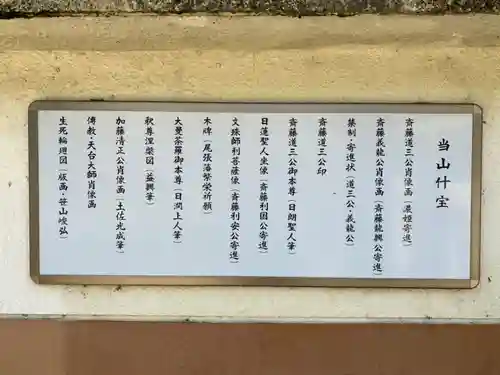 当山什宝
斉藤道三公肖像画（濃姫寄進）
斉藤義龍公肖像画（斉藤龍興公寄進）
禁制・寄進状（道三公・義龍公）
斉藤道三公印
斉藤道三公御本尊（日朗聖人筆）
日蓮聖人坐像（斉藤利国公寄進）
文珠師利菩薩像（斉藤利安公寄進）
木碑（尾張藩繁栄祈願）
大曼荼羅御本尊（日潤上人筆）
釈尊涅槃図（益興筆）
加藤清正公肖像画（土佐光成筆）
傳教・天台大師肖像画
生死輪廻図（板画・笹山峻弘）